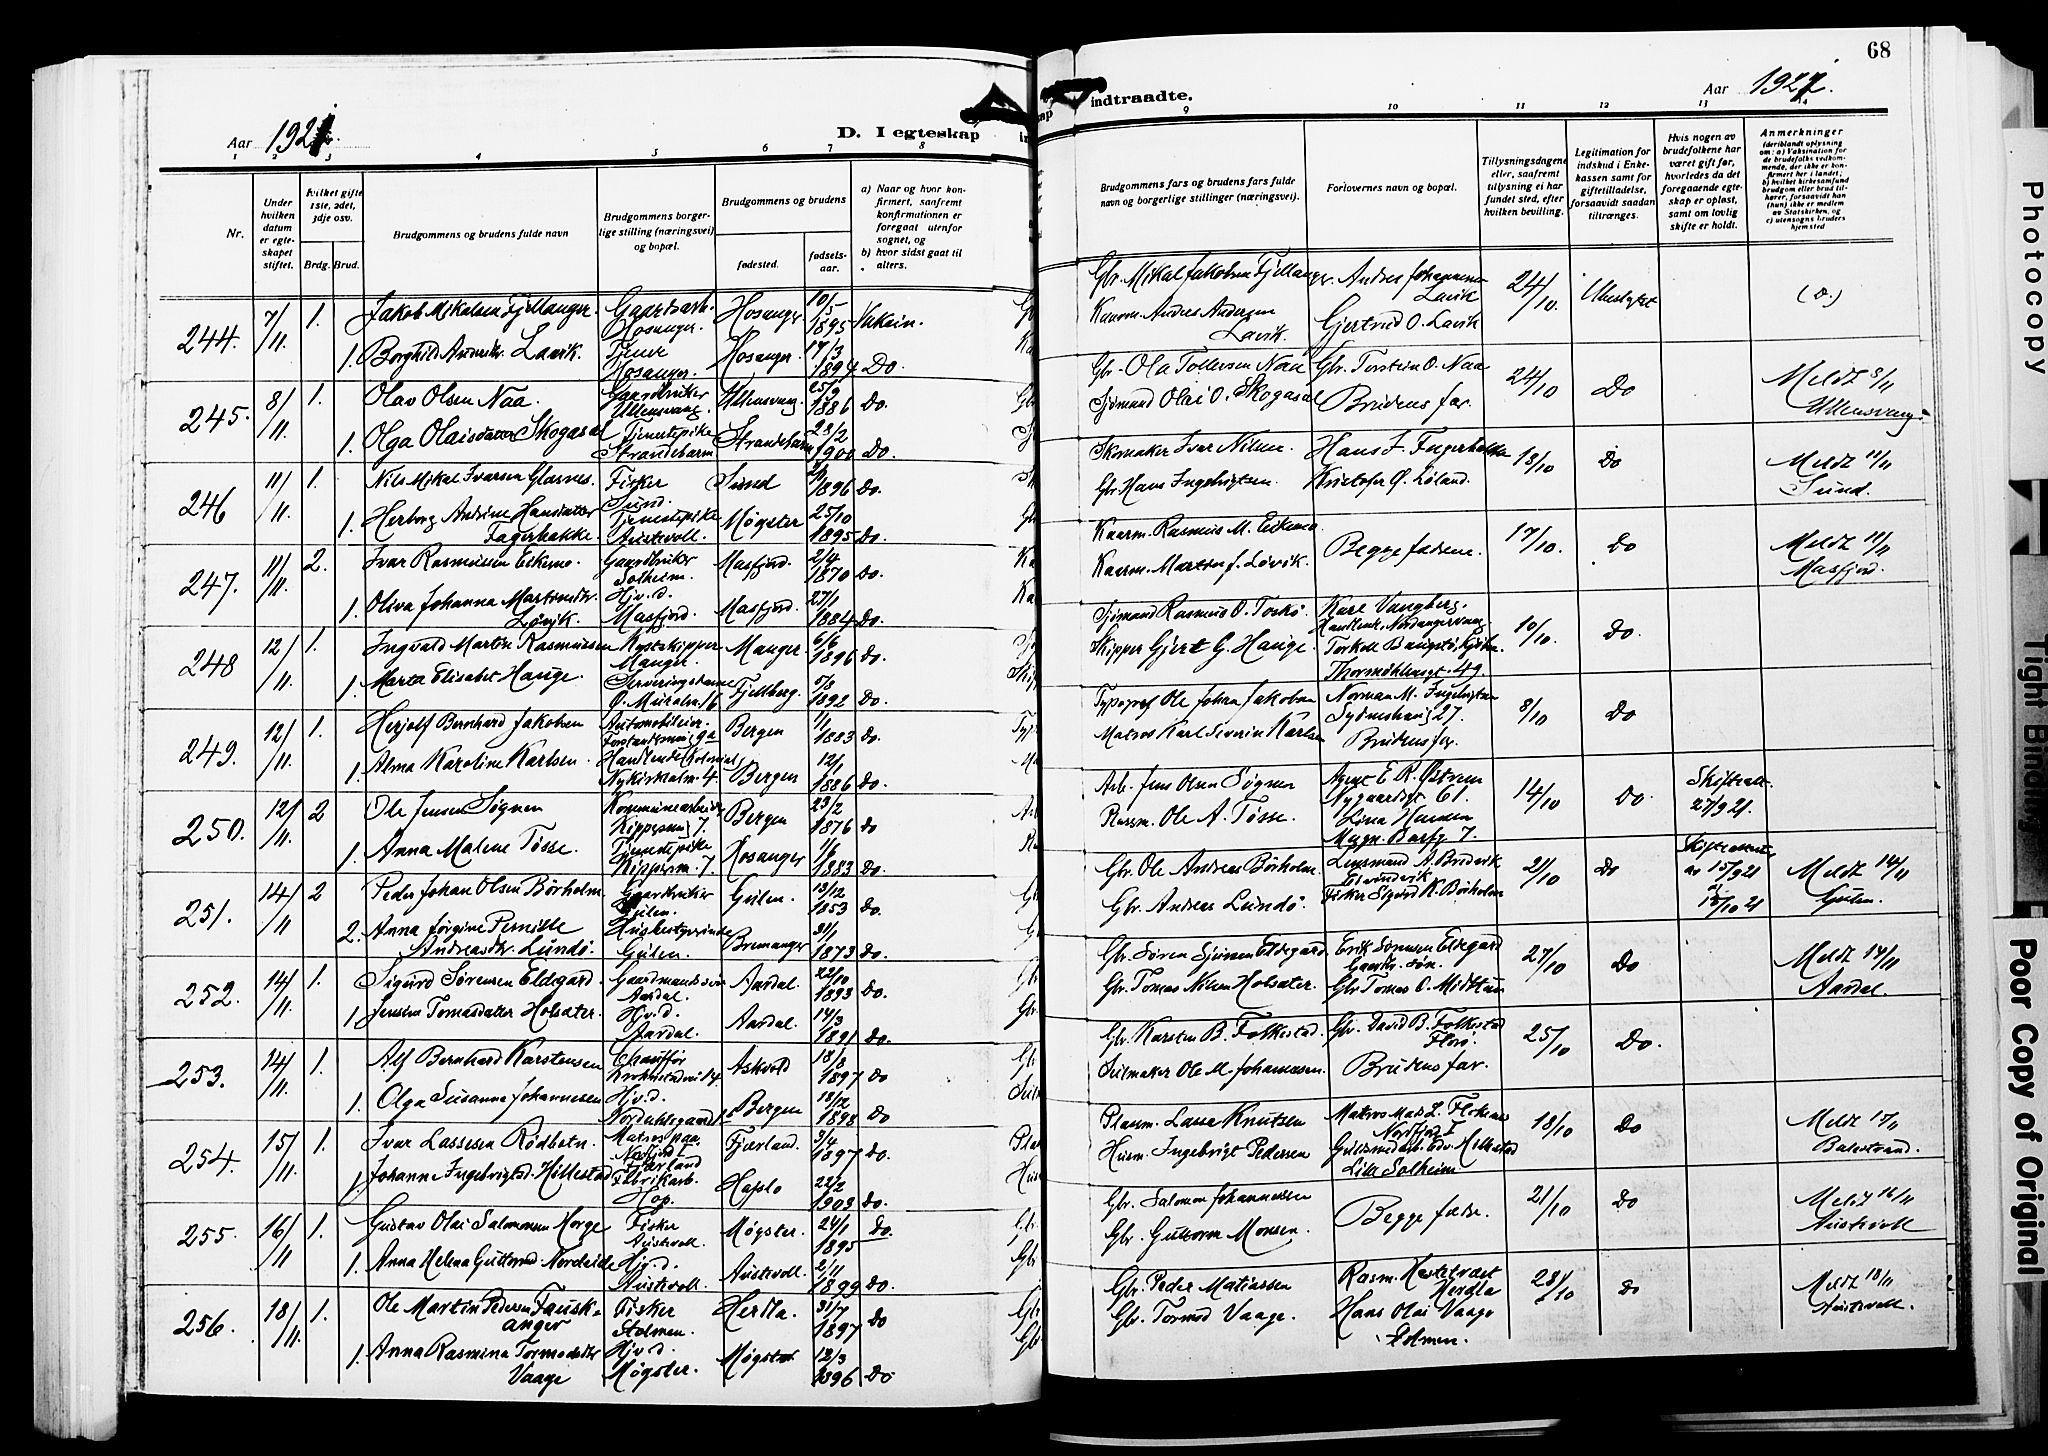 68
Aar 1921.
D. I egteskap indtraadte.
Aar 1921.
1 2 3 4 5 6 7 8
9 10 11 12 13 14
Nr.
Under hvilken datum er egteskapet stiftet.
Hvilket gifte 1ste, 2det, 3dje osv.
Brdg. Brud.
Brudgommens og brudens fulde navn
Brudgommens borgerlige stilling (næringsvei) og bopæl.
Brudgommens og brudens
fødested.
fødselsaar.
a) Naar og hvor konfirmert, saafremt konfirmationen er foregaat utenfor sognet, og
b) hvor sidst gaat til alters.
Brudgommens fars og brudens fars fulde navn og borgerlige stillinger (næringsvei).
Forlovernes navn og bopæl.
Tillysningsdagene eller, saafremt tillysning ei har fundet sted, efter hvilken bevilling.
Legitimation for indskud i Enkekassen samt for giftetilladelse, forsaavidt saadan tiltrænges.
Hvis nogen av brudefolkene har været gift før, hvorledes da det foregaaende egteskap er opløst, samt om lovlig skifte er holdt.
Anmerkninger
(deriblandt oplysning om: a) Vaksination for de brudefolks vedkommende, der ikke er konfirmert her i landet; b) hvilket kirkesamfund brudgom eller brud tilhører, forsaavidt han (hun) ikke er medlem av Statskirken, og c) utensogns bruders hjemsted
244. 7/11 1. Jakob Mikalsen Fjellanger. Gaardsarb. Hosanger. Hosanger 10/5 1895
1. Borghild Andersdtr. Lavik. Tjener Hosanger. Hosanger. 17/3 1894 Do.
Gbr. Mikal Jakobsen Fjellanger. Andres Johannesen Lavik 24/10.
Kaarm. Andres Andersen Lavik. Gjertrud O. Lavik
245. 8/11. 1. Olav Olsen Naa. Gaardbruker Ullensvang. Ullensvang. 25/9 1886 Do.
1. Olga Olaisdatter Skogasel Tjenestepike Strandebarm Strandebarm 23/2 1900 Do.
Gbr. Ola Tollefsen Naa Gbr. Torstein O. Naa 24/10 Do Meldt 8/11 Ullensvang.
Sjømand Olai O. Skogasel Brudens far.
246 11/11. 1. Nils Mikal Ivarsen Glasnes. Fisker Sund. Sund 1896 Do.
1. Herborg Andrine Hansdatter Fagerbakke. Tjenestepike Austevoll. Møgster 25/10 1895 Do.
Skomaker Ivar Nilsen. Hans J. Fagerbakke 18/10 Do Meldt 11/11 Sund.
Gbr. Hans Ingebrigtsen. Kristofer Ø. Løland.
247. 11/11. 2. Ivar Rasmussen Eikemo. Gaardbruker Solheim. Masfjord. 2/4 1870 Do.
1. Oliva Johanna Martinsdtr. Løvik. Hjv. d. Masfjord. Masfjord. 27/1 1884 Do.
Kaarm. Rasmus M. Eikemo. Begge fædrene. 17/10. Do Meldt 11/11 Masfjord.
Kaarm. Martin J. Løvik.
248 12/11. 1. Ingvald Martin Rasmussen Kystskipper Manger. Manger. 6/6 1896 Do.
1. Marta Elisabet Hauge. Serveringsdame Ø. Muralm. 16 Fjellberg. 1892 Do.
Sjømand Rasmus O. Toskø. Karl Vangberg. 10/10. Do.
Skipper Gjert G. Hauge. Thormøhlensgt. 49.
249. 12/11. 1. Herjolf Bernhard Jakobsen Automobileier. Bergen 1/1 1883 Do.
1. Alma Karoline Karlsen. Nykirkealm. 4. Bergen 12/1 1886 Do.
Typograf Ole Johan Jakobsen Norman M. Ingebrigtsen Sydneshaug 27. 8/10 Do
Matros Karl Severin Karlsen Brudens far.
250. 12/11. 2 Ole Jensen Søgnen Kommunearbeider Kippersmug 7. Bergen 23/2 1876 Do
1. Anna Malene Tøsse. Tjenestepike Kippersm. 7. Hosanger 1/6 1883 Do.
Arb. Jens Olsen Søgnen Agent E. R. Østrem Nygaardsgt. 61. 14/10 Do. Skifteatt. 27/9 21.
Kaarm. Ole A. Tøsse. Lina Hansen Magn. Barfg. 7.
251. 14/11 2 Peder Johan Olsen Børholm. Gaardbruker Gulen. Gulen. 13/12 1853 Do.
2. Anna Jørgine Pernille Andreasdtr. Lundø. Husbestyrerinde Gulen. Bremanger 31/1 1873 Do.
Gbr. Ole Andreas Børholm. Lensmand A. Brudvik 21/10 Do Skifteattester av 15/9 21 Meldt 14/11 Gulen.
Gbr. Andreas Lundø. Fisker Sigurd K. Børholm
252. 14/11. 1. Sigurd Sørensen Eldegard. Gaardmandssøn Aardal. Aardal. 22/10 1893 Do.
1 Jensine Tomasdatter Holsæter. Hjv. d. Aardal. Aardal. 14/3 1891 Do.
Gbr. Søren Sjursen Eldegard Erik Sørensen Eldegard Gaardbr. søn. 27/10 Do Meldt 14/11 Aardal.
Gbr. Tomas Nilsen Holsæter. Gbr. Tomas O. Midttun
253. 14/11. 1. Alf Bernhard Karstensen Chauffør Askvold 18/8 1897 Do
1. Olga Susanna Johannesen Hjv. d. Bergen 18/12 1898 Do
Gbr. Karsten B. Folkestad. Gbr. David B. Folkestad Florø. 25/10 Do.
Seilmaker Ole M. Johannesen. Brudens far.
254. 15/11. 1. Ivar Lassesen Rødbotn. Fjærland. 3/4 1897 Do.
1. Johanne Ingebrigtsd. Hillestad Fabrikarb. Hop. Hafslo 22/2 1903 Do.
Plassm. Lasse Knutsen 18/10 Do Meldt 15/11 Balestrand.
Husm. Ingebrigt Pedersen Lille Solheim
255. 16/11 1. Gustav Olai Salomonsen Horge Fisker Austevoll. Møgster. 24/1 1895 Do.
1. Anna Helena Guttormsd. Nordeide Hjv. d. Austevoll. Austevoll. 2/11 1899 Do.
Gbr. Salomon Johannessen Begge fædre. 21/10 Do Meldt 16/11 Austevoll
Gbr. Guttorm Monsen.
256. 18/11. 1. Ole Martin Pedersen Fauskanger Fisker Stolmen. Herdla 31/7 1897 Do
1. Anna Rasmina Tormodsdtr Vaage Hjv. d. Møgster. Møgster 12/3 1896 Do
Gbr. Peder Matiassen Rasm. Hestetræet Herdla 28/10 Do Meldt 18/11 Austevoll.
Gbr. Tormod Vaage. Hans Olai Vaage Stolmen.
Photocopy
Tight Binding
Poor Copy of Original